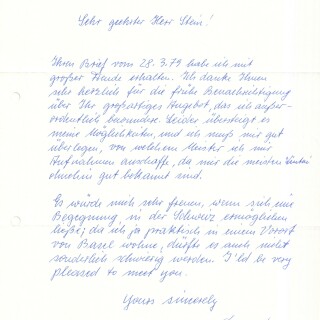 Sehr geehrter Herr Stein!
Ihren Brief vom 28.3.79 habe ich mit
großer Freude erhalten. Ich danke Ihnen
sehr herzlich für die frühe Benachrichtigung
über Ihr großartiges Angebot, das ich außer-
ordentlich bewundere. Leider übersteigt es
meine Möglichkeiten, und ich muß mir gut
überlegen, von welchem Meister ich mir
Aufnahmen anschaffe, da mir die meisten
ohnehin gut bekannt sind.
Es würde mich sehr freuen, wenn sich eine
Begegnung in der Schweiz ermöglichen
ließe; da ich ja praktisch in einem Vorort
von Basel wohne, dürfte es auch nicht
sonderlich schwierig werden. I'ld be very
pleased to meet you.
Yours sincerely